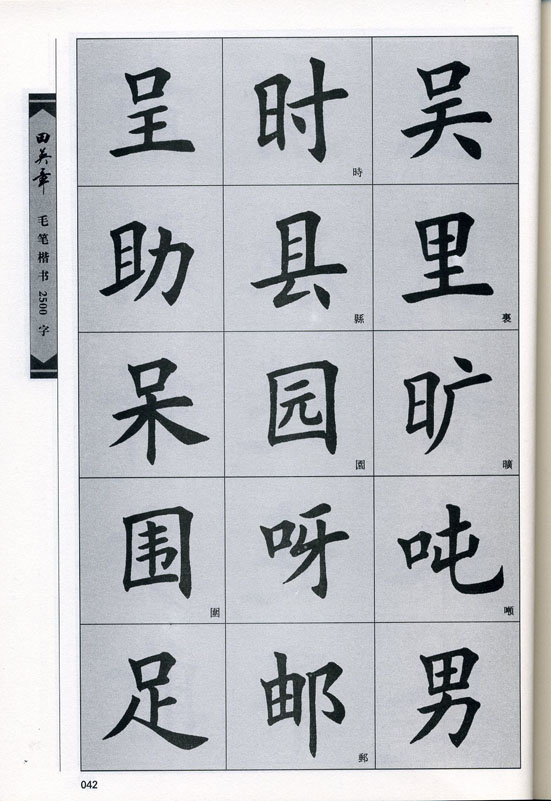 田英章 毛笔楷书2500字
呈 时 時 吴
助 县 縣 里 裏
呆 园 園 旷 曠
围 圍 呀 吨 噸
足 邮 郵 男
042